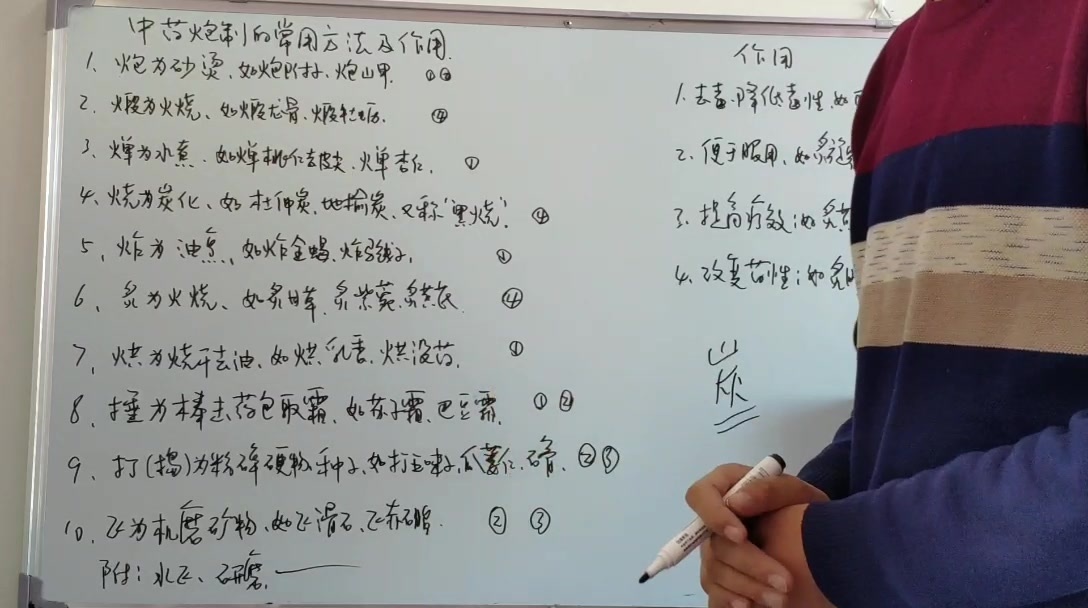 中药炮制的常用方法及作用
1、炮为砂烫、如炮附子、炮山甲. ①②
2、煅为火烧、如煅龙骨、煅牡蛎. ④
3、燀为水煮、如燀桃仁去皮尖、燀杏仁. ①
4、烧为炭化、如杜仲炭、地榆炭、又称"黑烧". ④
5、炸为油煎、如炸金蝎、炸
6、炙为火烧、如炙甘草、炙紫菀、炙黄芪. ④
7、烘为烧干去油、如烘乳香、烘没药. ①
8、捶为木棒击药包取霜、如苏子霜、巴豆霜. ①②
9、打(捣)为粉碎硬物种子、如打五味子、瓜蒌仁、 ②③
10、飞为机磨矿物、如飞滑石、飞赤石脂. ② ③
附:水飞、研磨.
作用
1、去毒、降低毒性、如
2、便于服用、如炙
3、提高疗效;如炙
4、改变药性;如炙
炭